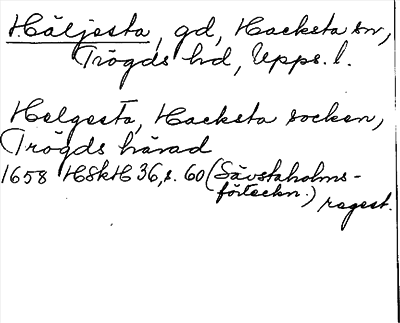 Häljesta, gd, Hacksta sn,
Trögds hd, Upps. l.
Helgesta, Hacksta socken,
Trögds härad
1658 HSkH 36, s. 60 (Sävstaholms-
förteckn.)
regest.